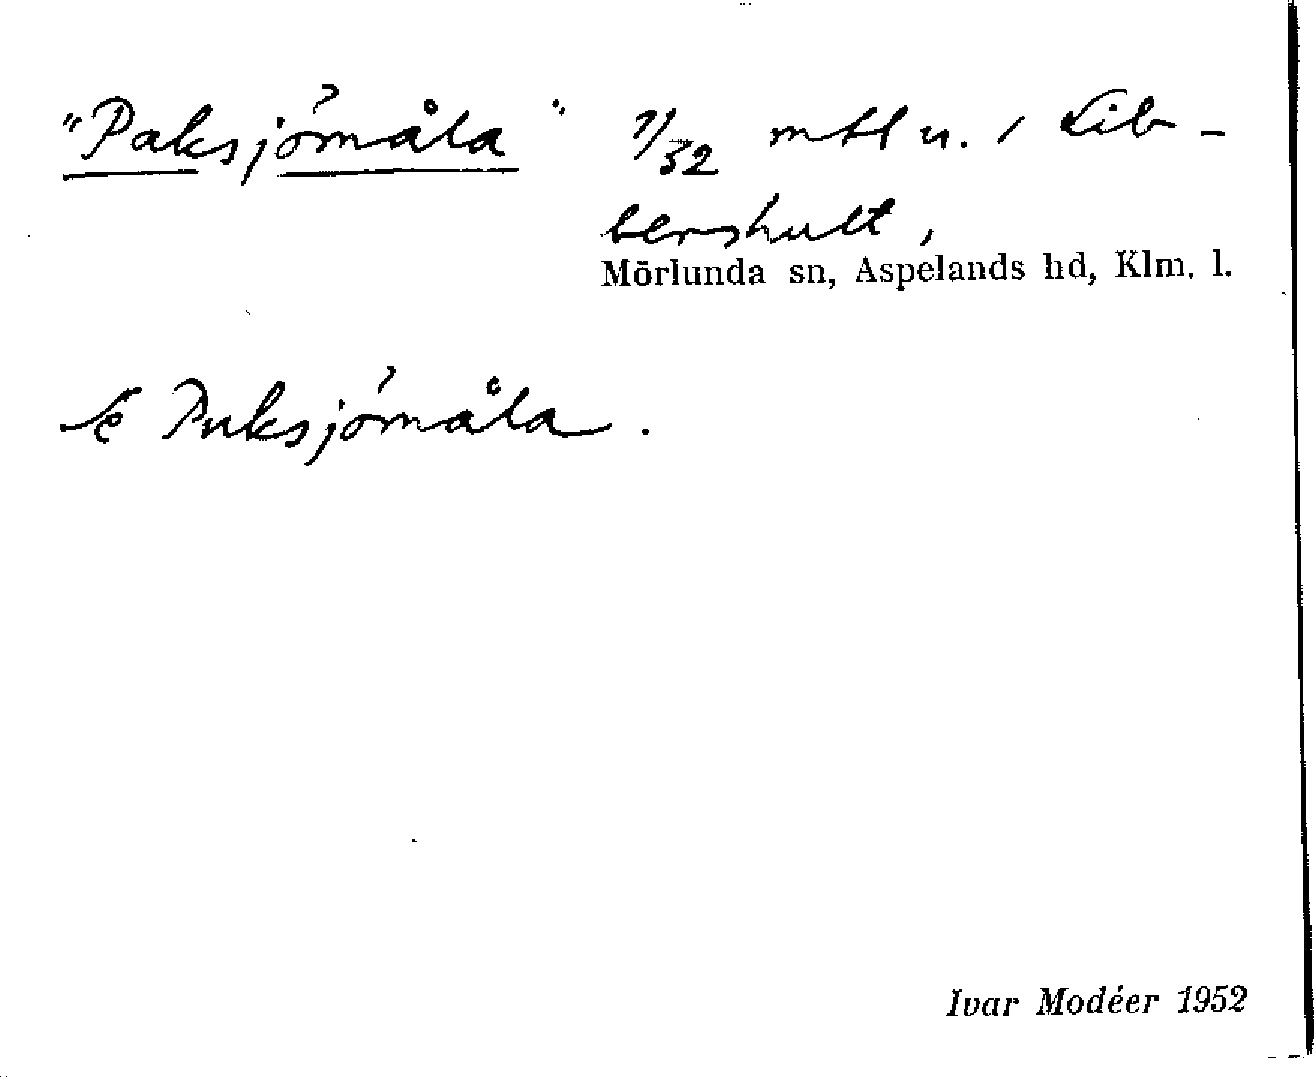 "Paksjömåla" 7/32 mtl u. i Lib-
bershult,
Mörlunda sn, Aspelands hd, Klm. l.
Se Puksjömåla.
Ivar Modéer 1952